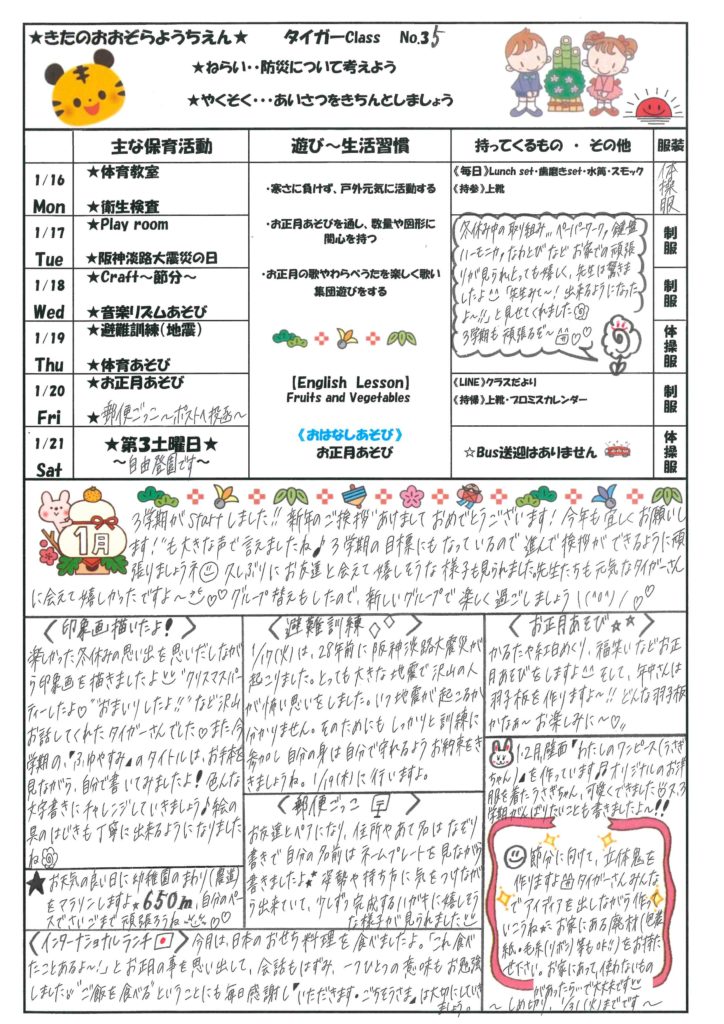 ★きたのおおぞらようちえん★ タイガーClass No.35
★ねらい・・防災について考えよう
★やくそく・・・あいさつをきちんとしましょう
主な保育活動 遊び～生活習慣 持ってくるもの ・ その他 服装
1/16 Mon
★体育教室
★衛生検査
1/17 Tue
★Play room
★阪神淡路大震災の日
1/18 Wed
★Craft～節分～
★音楽リズムあそび
1/19 Thu
★避難訓練(地震)
★体育あそび
1/20 Fri
★お正月あそび
★郵便ごっこ～ポストへ投函～
1/21 Sat
★第3土曜日★
～自由登園です～
・寒さに負けず、戸外元気に活動する
・お正月あそびを通し、数量や図形に
関心を持つ
・お正月の歌やわらべうたを楽しく歌い
集団遊びをする
【English Lesson】
Fruits and Vegetables
《おはなしあそび》
お正月あそび
《毎日》Lunch set・歯磨きset・水筒・スモック
《持参》上靴
冬休み中の取り組み… ペーパーワーク、鍵盤
ハーモニカ、なわとびなど お家での頑張
りが見られとっても嬉しく、先生は驚きま
したよ 「先生みて～! 出来るようになった
よ～!!」と見せてくれました
3学期も頑張るぞ～
《LINE》クラスだより
《持帰》上靴・プロミスカレンダー
☆Bus送迎はありません
体操服
制服
制服
体操服
制服
体操服
1月
3学期がstartしました!! 新年のご挨拶"あけましておめでとうございます!今年も宜しくお願いし
ます!"も大きな声で言えましたね♪ 3学期の目標にもなっているので進んで挨拶ができるように頑
張りましょうネ 久しぶりにお友達と会えて嬉しそうな様子も見られました。先生たちも元気なタイガーさん
に会えて嬉しかったですよ～ ♡♡ グループ替えもしたので、新しいグループで楽しく過ごしましょう!(^o^)/♡
〈印象画描いたよ!〉
楽しかった冬休みの思い出を思いだしなが
ら印象画を描きましたよ "クリスマスパー
ティーしたよ♡" "おまいりしたよ!!"など沢山
お話してくれたタイガーさんでした また、今
学期の、『ふゆやすみ』のタイトルは、お手本を
見ながら、自分で書いてみましたよ! 色んな
文字書きにチャレンジしていきましょう♪ 絵の
具のはじきも丁寧に出来るようになりました
ね
★お天気の良い日に幼稚園のまわり(農道)
をマラソンしますよ★650m、自分のペー
スでさいごまで頑張ろうね ♡♡
〈避難訓練◇◇〉
1/17(火)は、28年前に阪神淡路大震災が
起こりました。とっても大きな地震で沢山の人
が怖い思いをしました。いつ地震が起こるか
分かりません。そのためにもしっかりと訓練に
参加し自分の身は自分で守れるようお約束をき
きましょうね。1/19(木)に行いますよ。
〈郵便ごっこ〉
お友達とペアになり、住所やあて名はなぞり
書きで自分の名前はネームプレートを見ながら
書きましたよ★ 姿勢や持ち方に気をつけなが
ら出来ていて、少しずつ完成するハガキに嬉しそう
な様子が見られました
〈お正月あそび★★〉
かるたや絵あわせ、福笑いなどお正
月あそびをしますよ そして、年中さんは
羽子板を作りますよ～!! どんな羽子板
かなぁ～お楽しみに～♡
1・2月壁面『わたしのワンピース(うさぎ
ちゃん)』を作っています♫ オリジナルのお洋
服を着たうさぎちゃん、可愛くできました 又、3
学期がんばりたいことも書きましたよ～!!
節分に向けて、立体鬼を
作りますよ タイガーさんみんな
でアイディアを出しながら作って
いこうね☆ お家にある廃材(包装
紙・毛糸(リボン)等もok!!)をお持た
せ下さい。お家にあって、使わないもの
があったらいで大丈夫です
～しめ切り、1/31(火)までです～
〈インターナショナルランチ〉今月は、日本のおせち料理を食べましたよ。「これ食べ
たことあるよ～!」とお正月の事を思い出して、会話もはずみ、一つひとつの意味もお勉強
しました "ご飯を食べる"ということにも毎日感謝し『いただきます・ごちそうさま』は大切にしていき
ましょう。